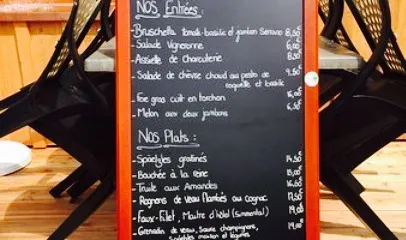 NOS Entrées:
- Bruschetta tomate-basilic et jambon Serrano 8,50€
- Salade Vigneronne 6,00€
- Assiette de charcuterie 8,50€
- Salade de chèvre chaud au pesto de 9,50€
roquette et basilic
- Foie gras cuit en torchon 16,00€
- Melon aux deux jambons 6,50€
NOS Plats:
- Spaetzles gratinés 14,50€
- Bouchée à la reine 15,00€
- Truite aux Amandes 16,50€
- Rognons de veau flambés au cognac 17,50€
- Faux-Filet, Maitre d'hôtel (Simmental) 19,00€
- Grenadin de veau, sauce champignons, 19,00
spätzles maison et légumes